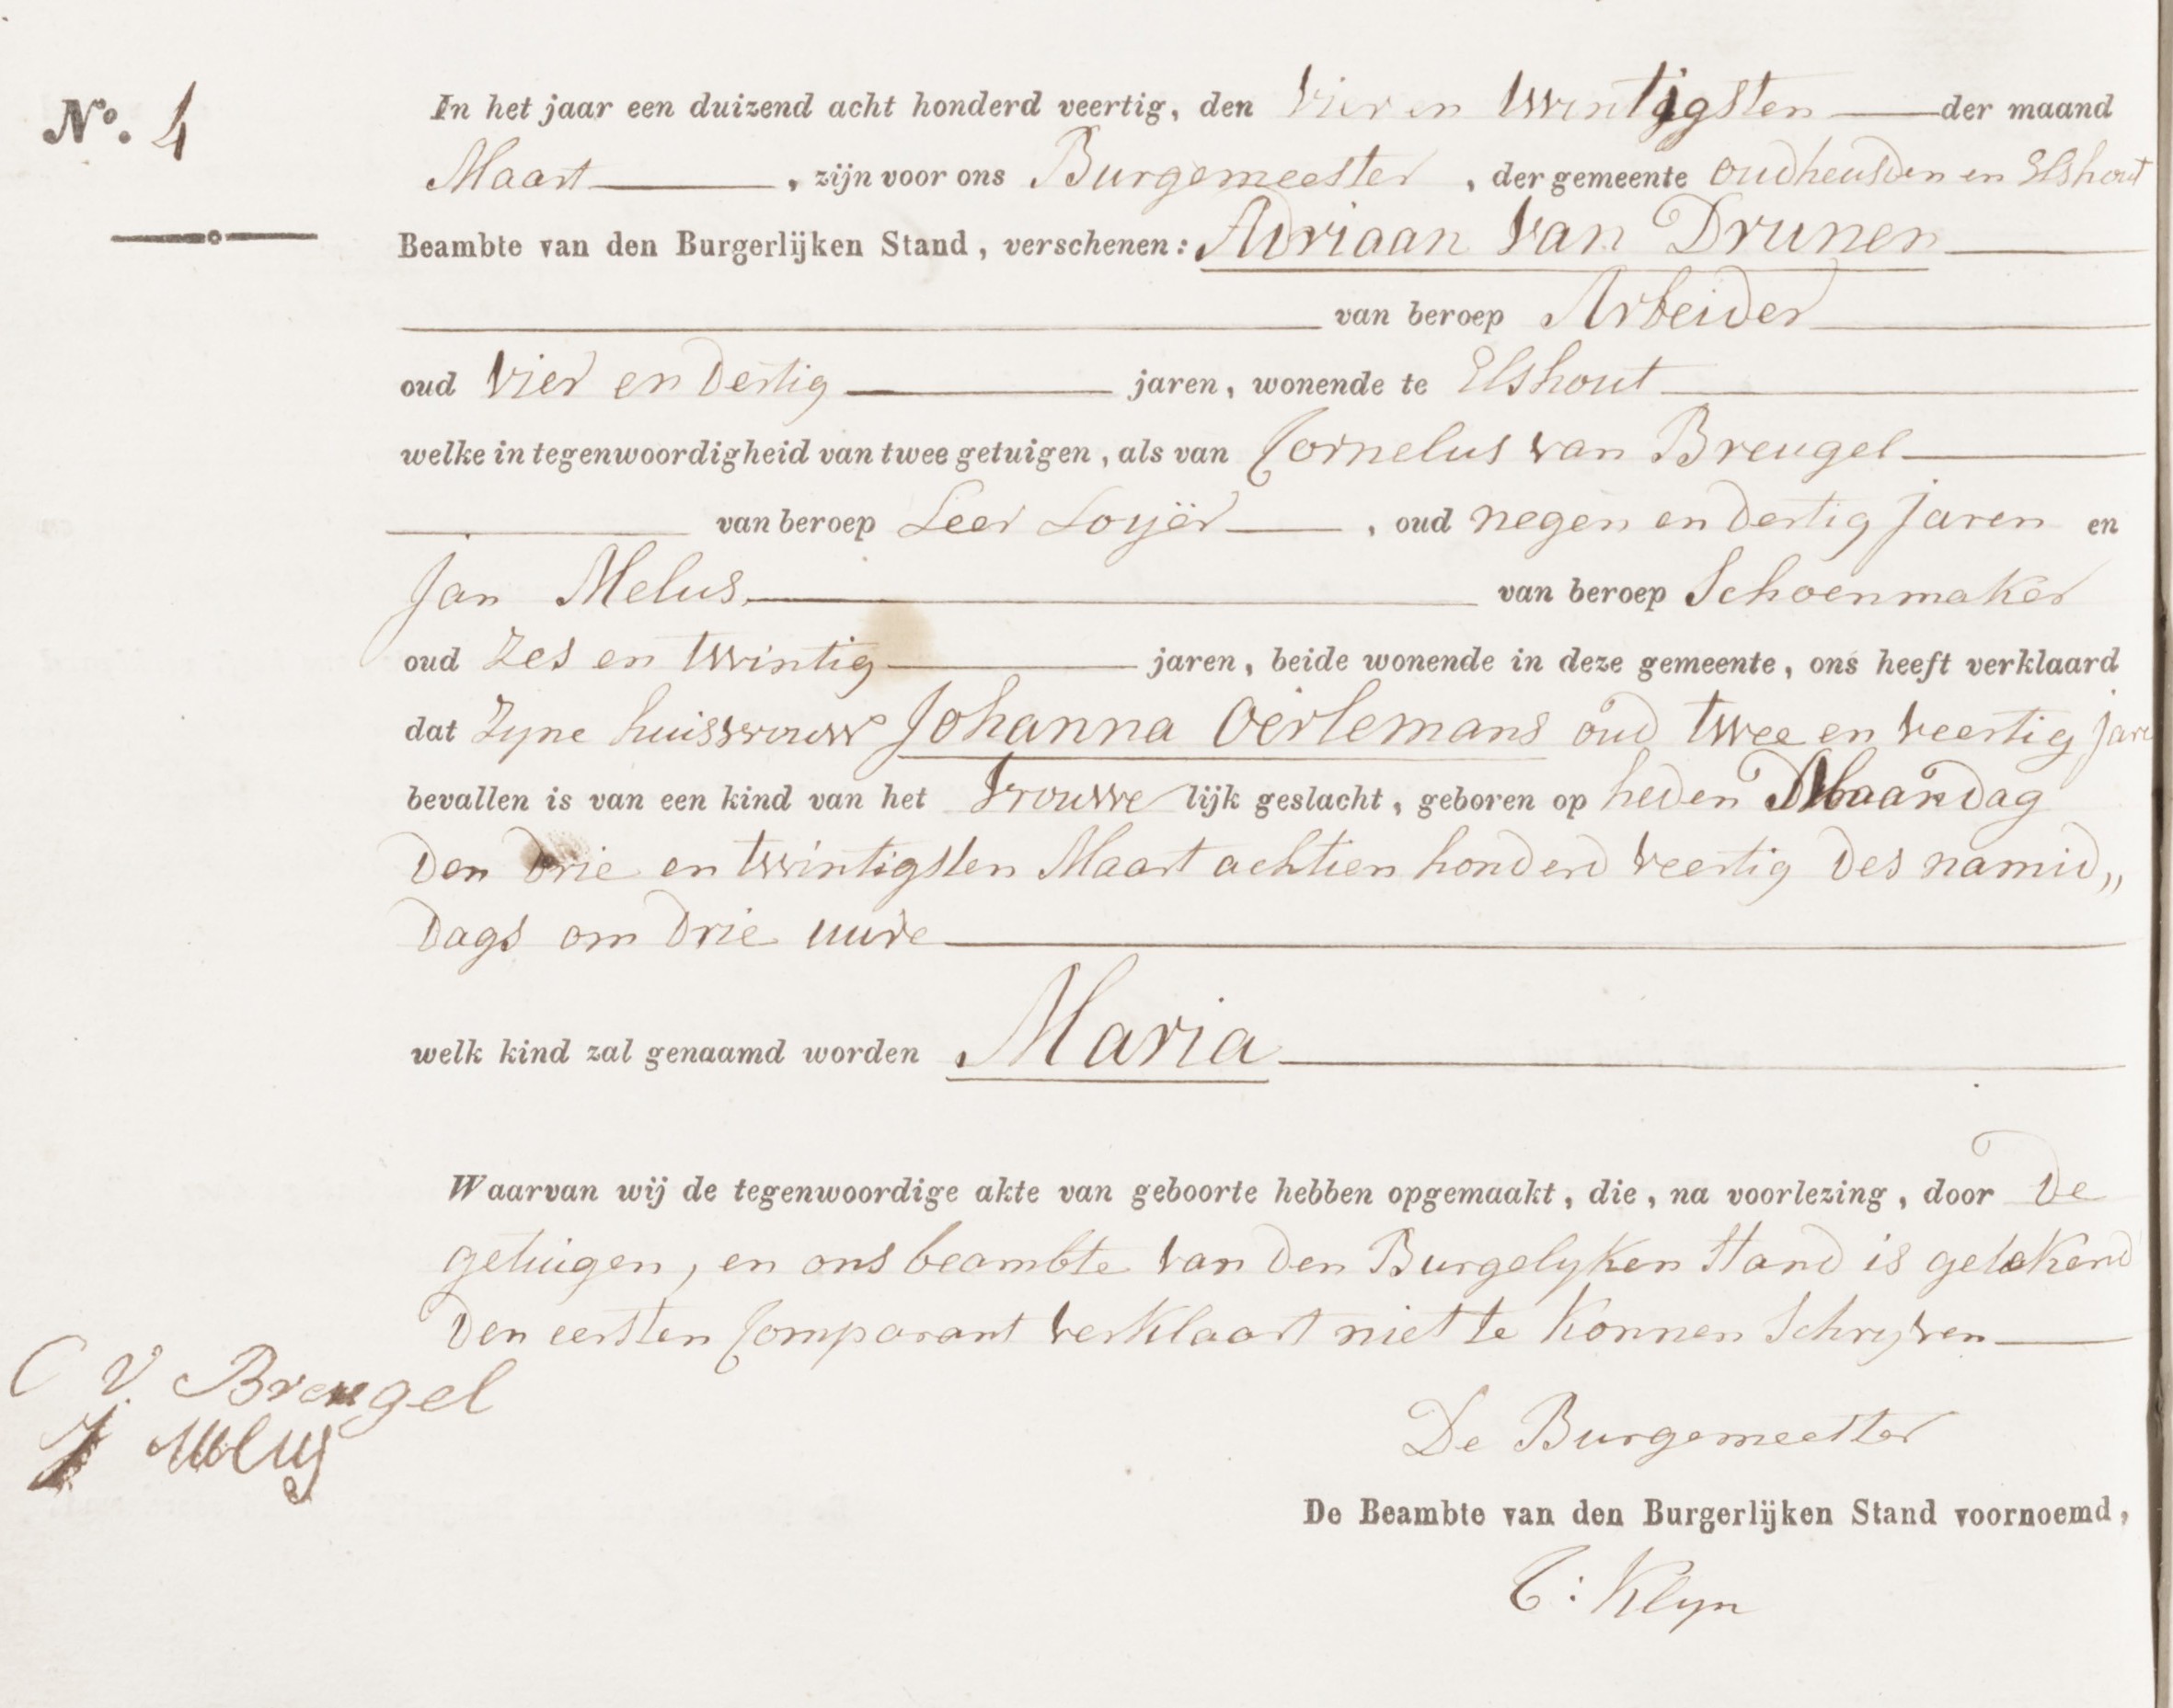 N.º 4
In het jaar een duizend acht honderd veertig, den Vier en twintigsten der maand
Maart, zijn voor ons Burgemeester, der gemeente oudheusden en Elshout
Beambte van den Burgerlijken Stand, verschenen: Adriaan van Drunen
van beroep Arbeider
oud Vier en dertig jaren, wonende te Elshout
welke in tegenwoordigheid van twee getuigen, als van Cornelus van Breugel
van beroep Leer Loyër, oud negen en dertig jaren en
Jan Melus van beroep Schoenmaker
oud Zes en twintig jaren, beide wonende in deze gemeente, ons heeft verklaard
dat Zyne huisvrouw Johanna Oerlemans oud twee en veertig jare
bevallen is van een kind van het Vrouwe lijk geslacht, geboren op heden Maandag
den drie en twintigsten Maart achtien honderd veertig des namid„
dags om drie uure
welk kind zal genaamd worden Maria
Waarvan wij de tegenwoordige akte van geboorte hebben opgemaakt, die, na voorlezing, door de
getuigen, en ons beambte van den Burgelyken Stand is getekend
den eersten Comparant verklaart niet te konnen Schryven
C V. Breugel
J Melus
De Burgemeester
De Beambte van den Burgerlijken Stand voornoemd,
C: Klyn